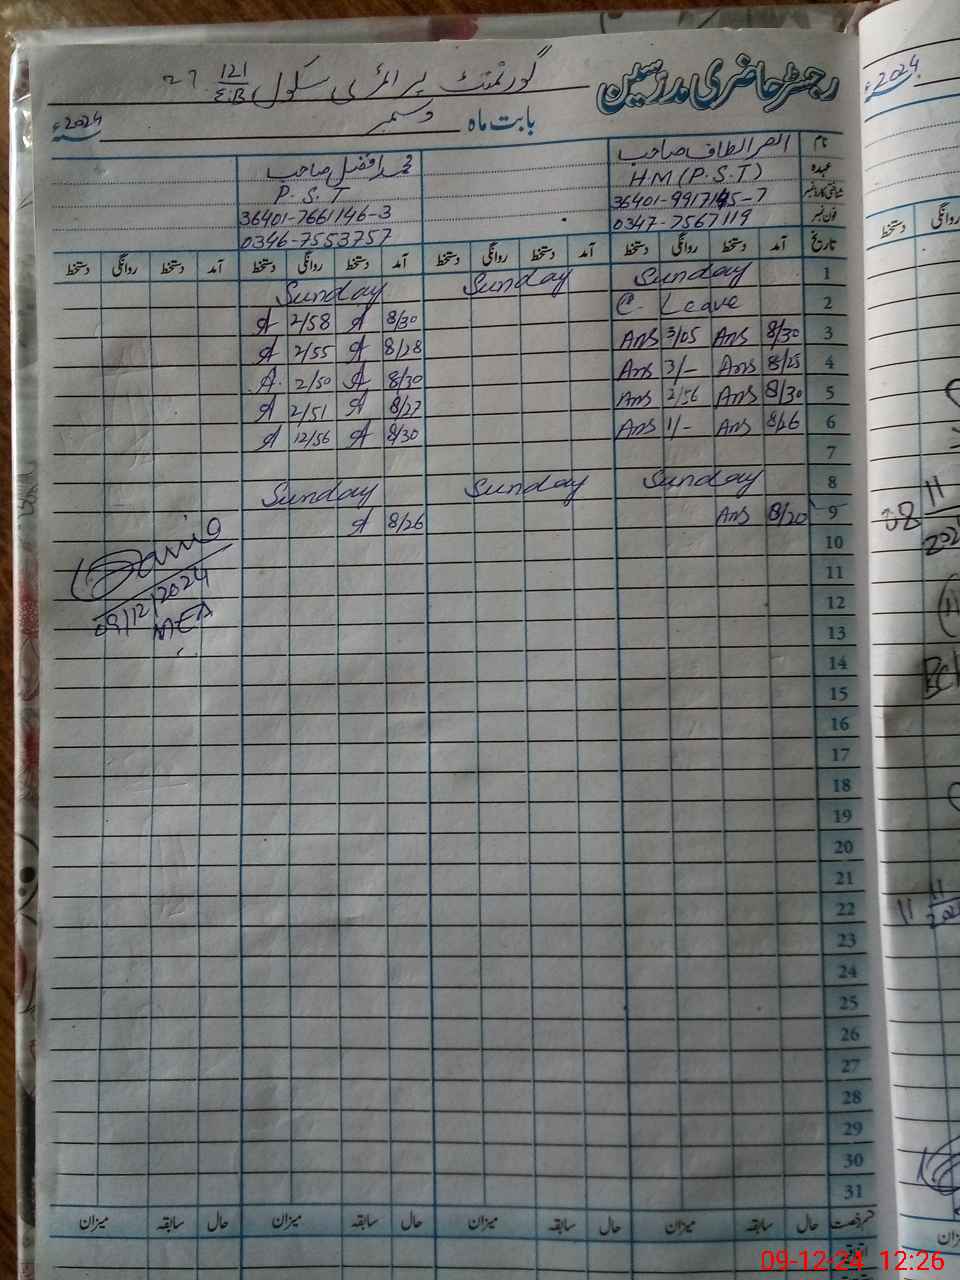 رجسٹر حاضری مدرسین گورنمنٹ پرائمری سکول 121/E.B
بابت ماہ دسمبر 2024ء
نام الطاف صاحب محمد افضل صاحب
عہدہ HM (P.S.T) P.S.T
شناختی کارڈ نمبر 36401-7661146-3
فون نمبر 0347-7567119 0346-7553757
تاریخ آمد دستخط روانگی دستخط آمد دستخط روانگی دستخط آمد دستخط روانگی دستخط آمد دستخط روانگی دستخط
1 Sunday Sunday Sunday
2 C. Leave 8/30 A 2/58 A
3 8/30 Ans 3/05 Ans 8/28 A 2/55 A
4 8/25 Ans 3/- Ans 8/30 A 2/50 A
5 8/30 Ans 2/56 Ans 8/27 A 2/51 A
6 8/26 Ans 1/- Ans 8/30 A 12/56 A
7
8 Sunday Sunday Sunday
9 8/20 Ans 8/26 A
10
11
12
13
14
15
16
17
18
19
20
21
22
23
24
25
26
27
28
29
30
31
09/12/2024
MEA
حال سابقہ میزان حال سابقہ میزان حال سابقہ میزان حال سابقہ میزان
2024ء
روانگی دستخط
11
2024
11 11
09-12-24 12:26